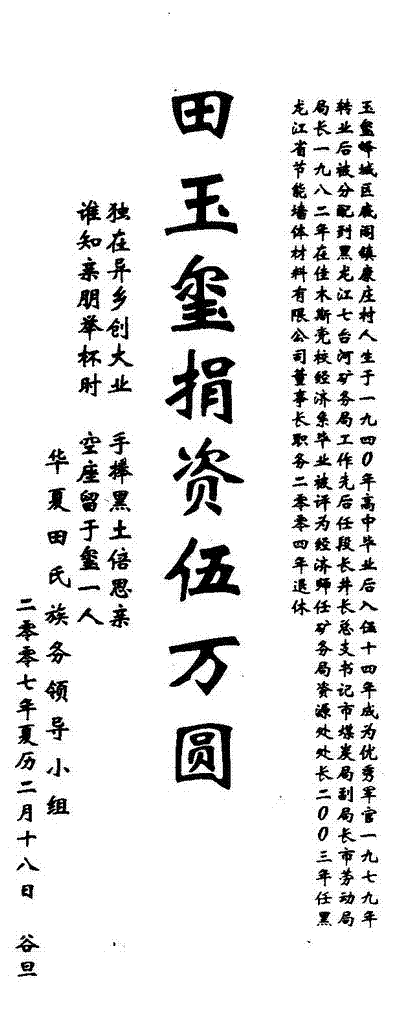 玉玺峄城区底阁镇康庄村人生于一九四〇年高中毕业后入伍十四年成为优秀军官一九七九年
转业后被分配到黑龙江七台河矿务局工作先后任段长井长总支书记市煤炭局副局长市劳动局
局长一九八二年在佳木斯党校经济系毕业被评为经济师任矿务局资源处处长二〇〇三年任黑
龙江省节能墙体材料有限公司董事长职务二零零四年退休
田玉玺捐资伍万圆
独在异乡创大业 手捧黑土倍思亲
谁知亲朋举杯时 空座留于玺一人
华夏田氏族务领导小组
二零零七年夏历二月十八日 谷旦